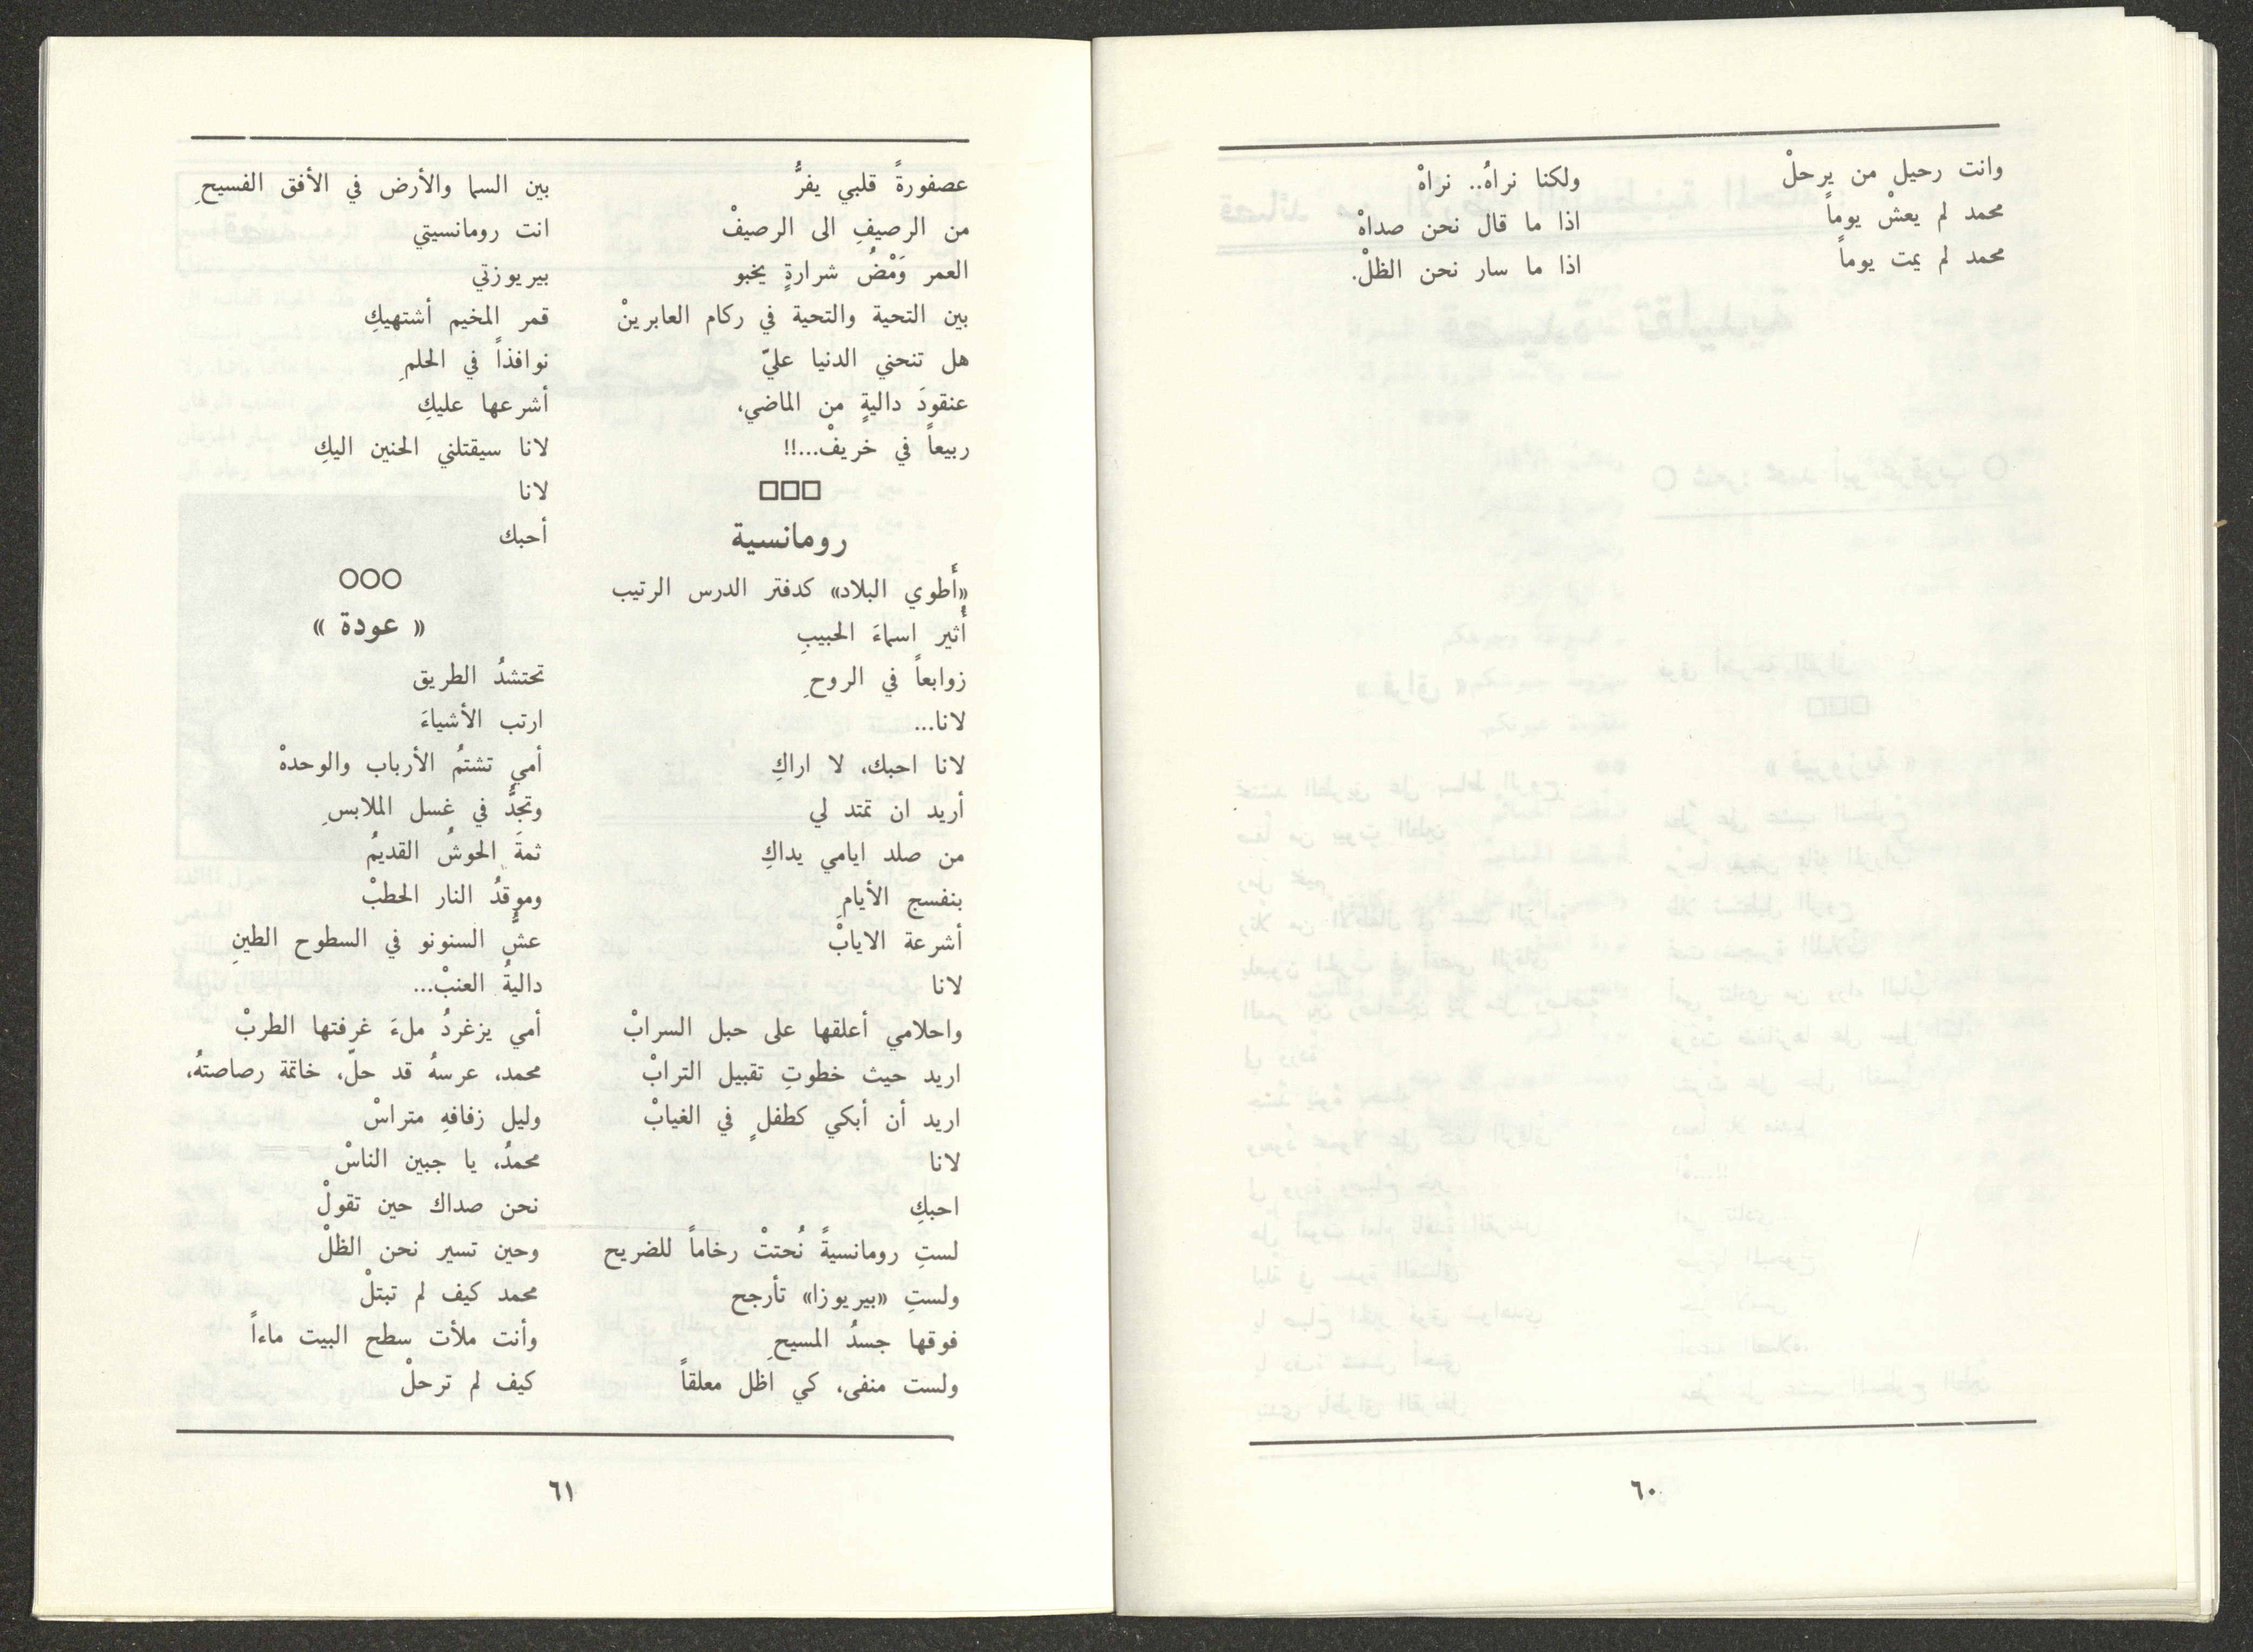 وانت رحيل من يرحلْ
محمد لم يعشْ يوماً
محمد لم يمت يوماً
ولكنا نراهُ.. نراهْ
اذا ما قال نحن صداهْ
اذا ما سار نحن الظلْ.
٦٠
عصفورةً قلبي يفرُّ
من الرصيفِ الى الرصيفْ
العمر وَمْضُ شرارةٍ يخبو
بين التحية والتحية في ركام العابرينْ
هل تنحني الدنيا عليّ
عنقودَ داليةٍ من الماضي،
ربيعاً في خريفْ...!!
□□□
رومانسية
«أَطوي البلاد» كدفتر الدرس الرتيب
أُثير اسماءَ الحبيبِ
زوابعاً في الروحِ
لانا...
لانا احبك، لا اراكِ
أريد ان تمتد لي
من صلد ايامي يداكِ
بنفسج الأيامِ
أشرعة الايابْ
لانا
واحلامي أعلقها على حبل السرابْ
اريد حيث خطوتِ تقبيل الترابْ
اريد أن أبكي كطفلٍ في الغيابْ
لانا
احبكِ
لستِ رومانسيةً نُحتتْ رخاماً للضريح
ولستِ «بيريوزا» تأرجح
فوقها جسدُ المسيحِ
ولست منفى، كي اظل معلقاً
بين السما والأرض في الأفق الفسيحِ
انت رومانسيتي
بيريوزتي
قمر المخيم أشتهيكِ
نوافذاً في الحلمِ
أشرعها عليكِ
لانا سيقتلني الحنين اليكِ
لانا
أحبك
○○○
« عودة »
تحتشدُ الطريق
ارتب الأشياءَ
أمي تشتمُ الأرباب والوحدهْ
وتجدُّ في غسل الملابسِ
ثمةَ الحوشُ القديمُ
وموقدُ النار الحطبْ
عشُّ السنونو في السطوح الطينِ
داليةُ العنبْ...
أمي يزغردُ ملءَ غرفتها الطربْ
محمد، عرسهُ قد حلّ، خاتمة رصاصتهُ،
وليل زفافهِ متراسْ
محمدُ، يا جبين الناسْ
نحن صداك حين تقولْ
وحين تسير نحن الظلْ
محمد كيف لم تبتلْ
وأنت ملأت سطح البيت ماءاً
كيف لم ترحلْ
٦١